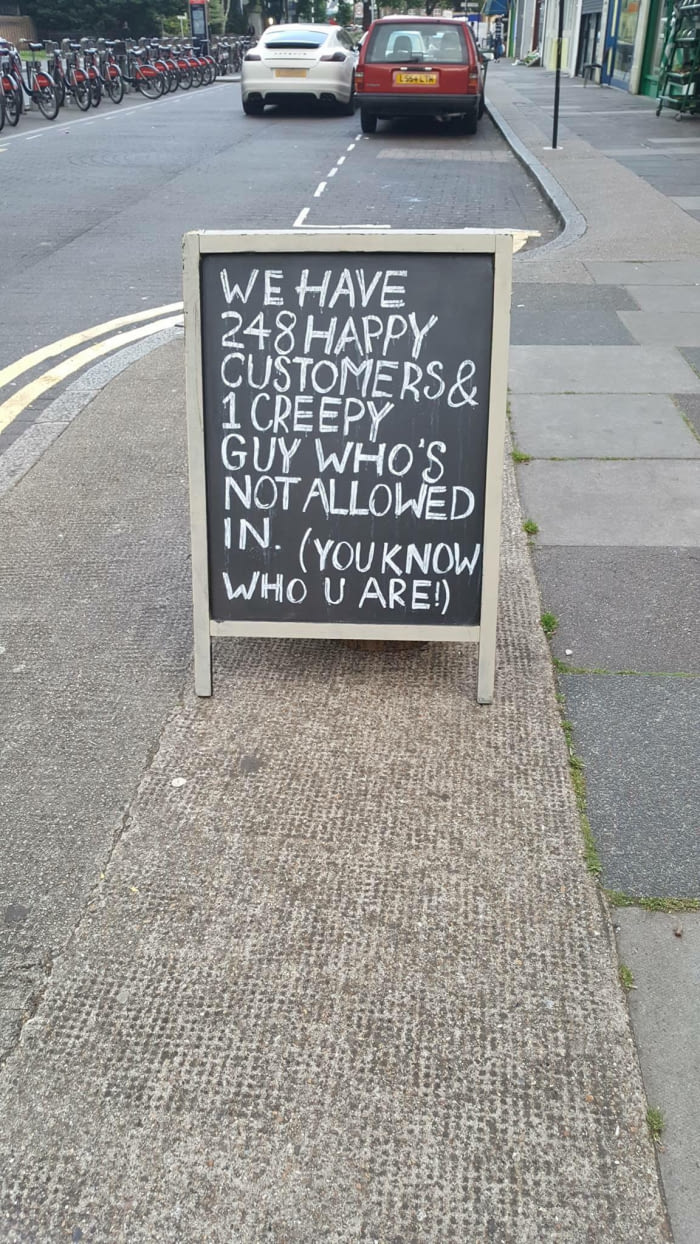 WE HAVE
248 HAPPY
CUSTOMERS &
1 CREEPY
GUY WHO'S
NOT ALLOWED
IN. (YOU KNOW
WHO U ARE!)